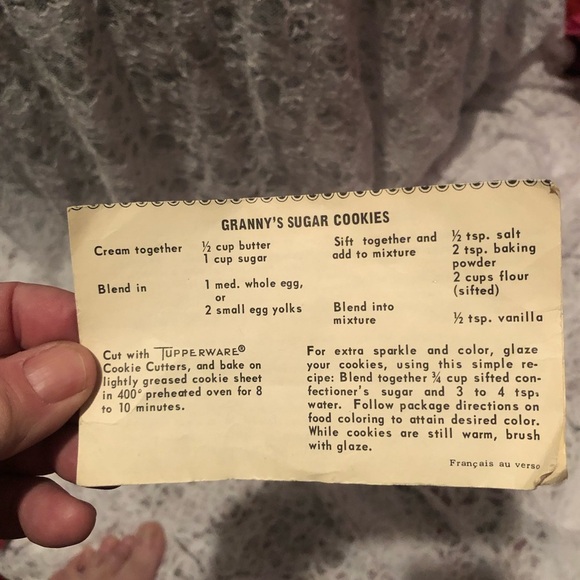 GRANNY'S SUGAR COOKIES
Cream together
½ cup butter
1 cup sugar
Blend in
1 med. whole egg,
or
2 small egg yolks
Sift together and
add to mixture
½ tsp. salt
2 tsp. baking
powder
2 cups flour
(sifted)
Blend into
mixture
½ tsp. vanilla
Cut with TUPPERWARE®
Cookie Cutters, and bake on
lightly greased cookie sheet
in 400° preheated oven for 8
to 10 minutes.
For extra sparkle and color, glaze
your cookies, using this simple re-
cipe: Blend together ¾ cup sifted con-
fectioner's sugar and 3 to 4 tsps.
water. Follow package directions on
food coloring to attain desired color.
While cookies are still warm, brush
with glaze.
Français au verso